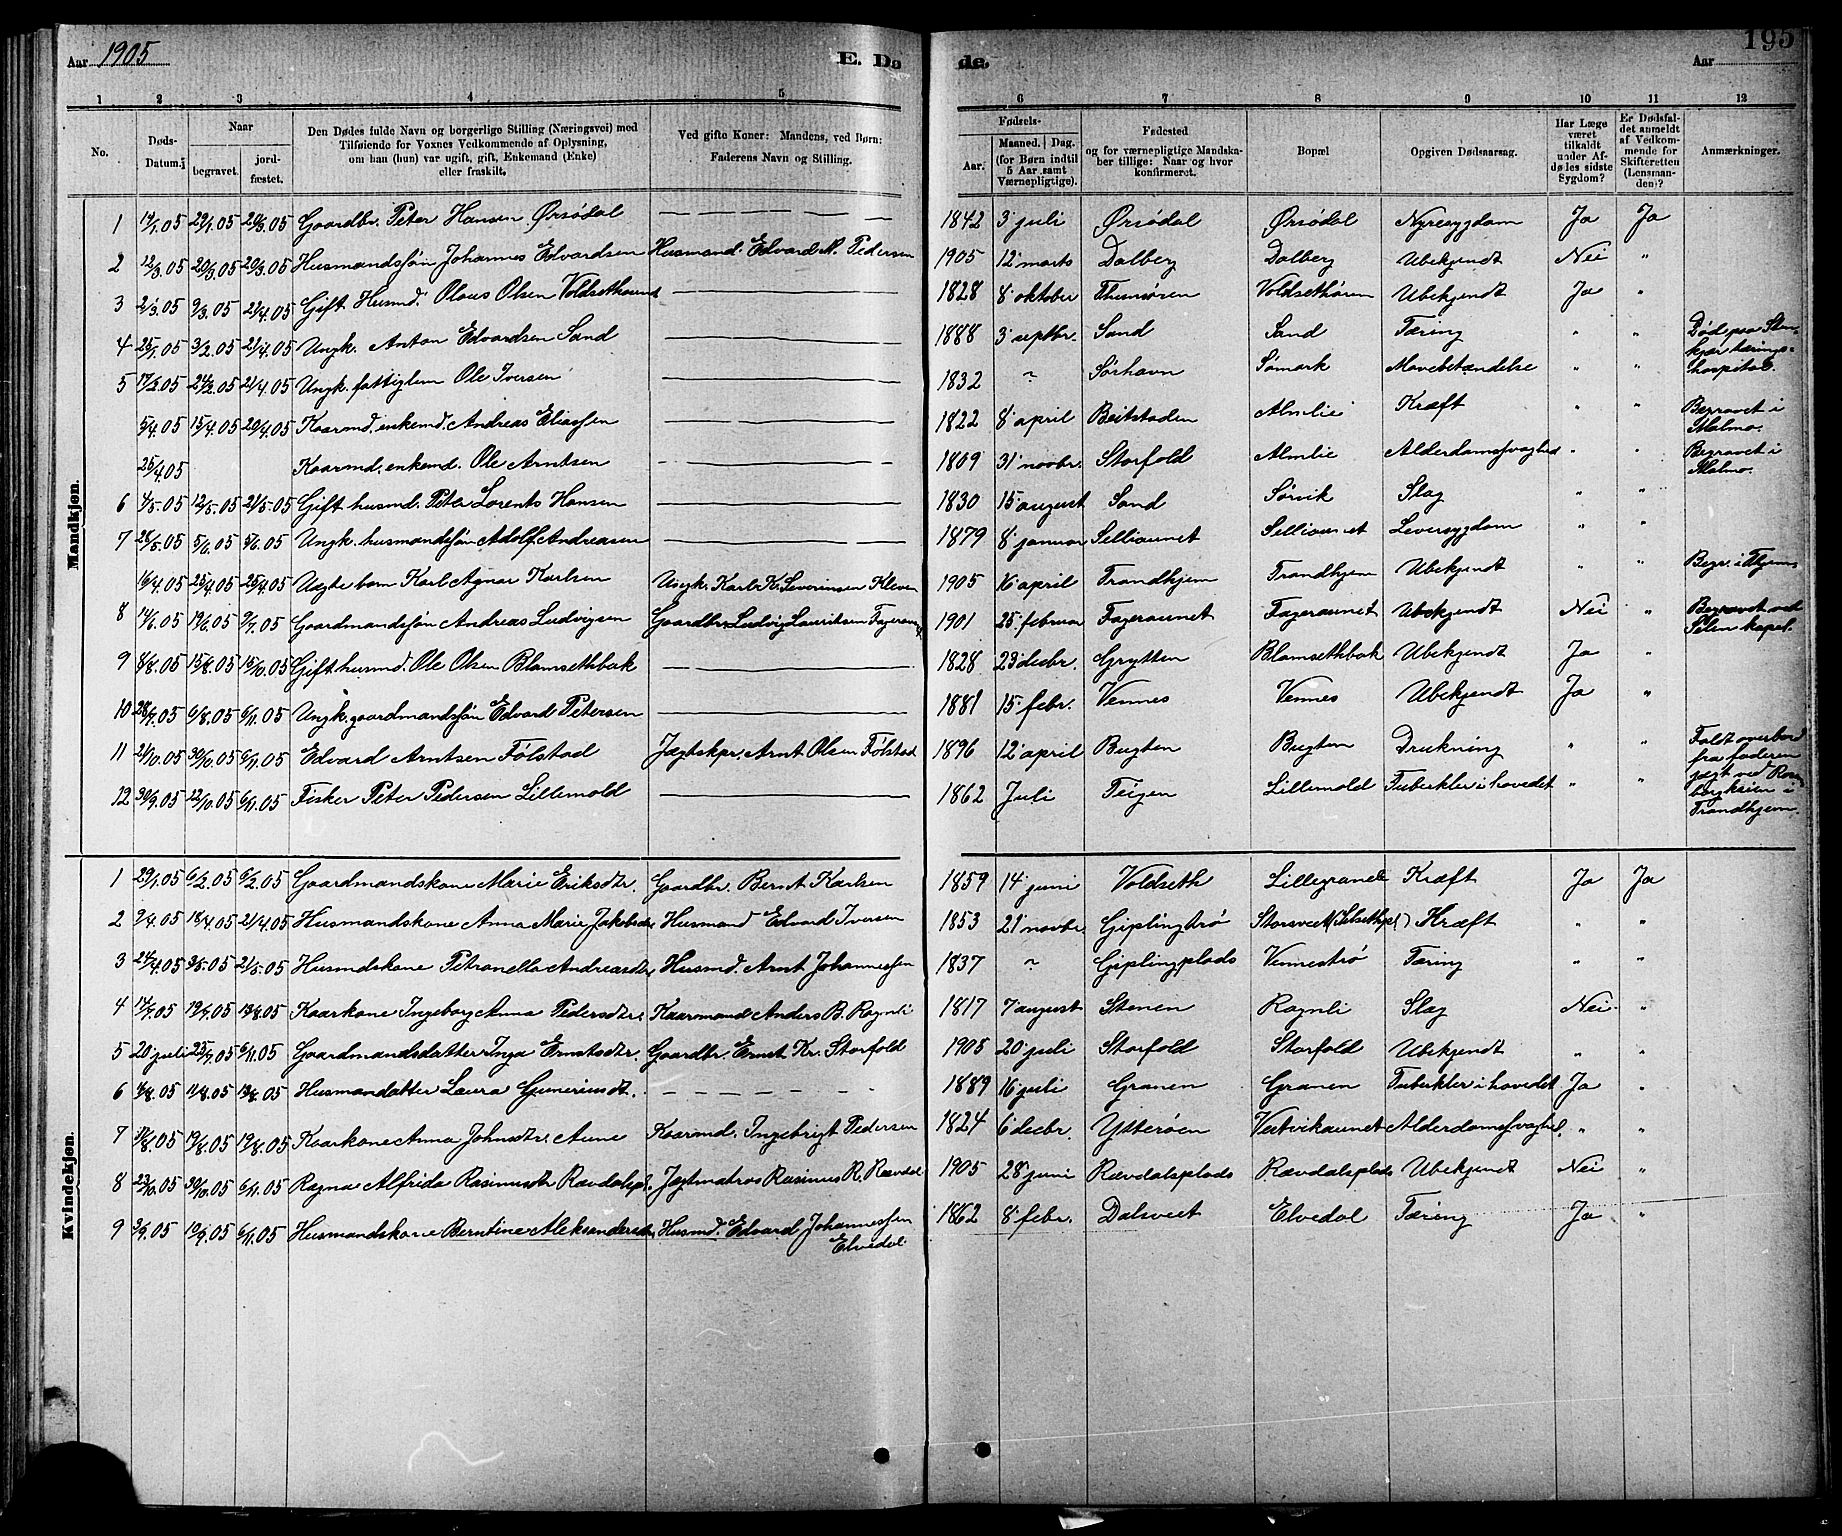 Aar 1905 E. Dø de. Aar 195
1 2 3 4 5 6 7 8 9 10 11 12
No. Døds-Datum. Naar begravet. jordfæstet. Den Dødes fulde Navn og borgerlige Stilling (Næringsvei) med Tilføiende for Voxnes Vedkommende af Oplysning, om han (hun) var ugift, gift, Enkemand (Enke) eller fraskilt. Ved gifte Koner: Mandens, ved Børn: Faderens Navn og Stilling. Fødsels- Aar. Maaned. Dag. (for Børn indtil 5 Aar samt Værnepligtige). Fødested og for værnepligtige Mandskaber tillige: Naar og hvor konfirmeret. Bopæl Opgiven Dødsaarsag. Har Læge været tilkaldt under Afdødes sidste Sygdom? Er Dødsfaldet anmeldt af Vedkommende for Skifteretten (Lensmanden)? Anmærkninger.
Mandkjøn.
1 19/1.05 29/1.05 20/3.05 Gaardbr. Peter Hansen Ørsødal — — — — — 1842 3 juli Ørsødal Ørsødal Nyresygdom Ja Ja
2 12/3.05 20/3.05 20/3.05 Husmandssøn Johannes Edvardsen Husmand Edvard M. Pedersen 1905 12 marts Dalberg Dalberg Ubekjendt Nei "
3 2/3.05 9/3.05 21/4.05 Gift Husmd. Olaus Olsen Voldsethaund — — — 1828 8 oktober Voldsethåren Ubekjendt Ja "
4 25/1.05 3/2.05 21/4.05 Ungk. Anton Edvardsen Sand — — — 1888 3 septbr. Sand Sand Tæring " " Død paa Stenkjær tæringshospital.
5 17/2.05 24/2.05 21/4.05 Ungk. fattiglem Ole Iversen — — — 1832 ? Sørhavn Sømark Mavebetændelse " "
5/4.05 15/4.05 20/4.05 Kaarmd. enkemd. Andreas Eliassen — — — 1822 8 april Beitstaden Almlie Kræft " " Begravet i Malmo.
25/4.05 Kaarmd. enkemd. Ole Arntsen — — — 1809 31 novbr. Storfold Almlie Alderdomssvaghed " " Begravet i Malmo.
6 4/5.05 12/5.05 21/5.05 Gift husmd. Peter Lorents Hansen — — — 1830 15 august Sand Sørvik Slag " "
7 28/5.05 5/6.05 5/6.05 Ungk. husmandssøn Adolf Andreasen — — — 1879 8 januar Selliaunet Selliaunet Leversygdom " "
16/4.05 25/4.05 25/4.05 Uægte barn Karl Agnar Karlsen Ungk. Karl K. Severinsen Kleven 1905 16 april Trondhjem Trondhjem Ubekjendt " "
8 14/6.05 19/6.05 9/7.05 Gaardmandssøn Andreas Ludvigsen Gaardbr. Ludvig Lauritsen Fageraunet 1901 25 februar Fageraunet Fageraunet Ubekjendt Nei " Begravet ved kapel.
9 8/8.05 15/8.05 15/10.05 Gift husmd. Ole Olsen Blamsethbak — — — 1828 23 decbr. Grytten Blamsethbak Ubekjendt Ja "
10 28/7.05 6/8.05 6/11.05 Ungk. gaardmandssøn Edvard Petersen — — — 1881 15 febr. Vennes Vennes Ubekjendt Ja "
11 21/10.05 30/10.05 6/11.05 Edvard Arntsen Følstad Jægtskpr. Arnt Olsen Følstad 1896 12 april Bugten Bugten Drukning " " Faldt overbord fra faderens jægt ved i Trondhjem.
12 30/9.05 12/10.05 6/11.05 Fisker Peter Pedersen Lillemold — — — 1862 Juli Teigen Lillemold Tuberkler i hovedet " "
Kvindekjøn.
1 29/1.05 6/2.05 6/2.05 Gaardmandskone Marie Eriksdtr. Gaardbr. Bernt Karlsen 1859 14 juni Voldseth Lillegrande Kræft Ja Ja
2 9/4.05 18/4.05 21/4.05 Husmandskone Anna Marie Jakobsdtr. Husmand Edvard Iversen 1853 21 novbr. Giplingtrø Kræft " "
3 24/4.05 3/5.05 21/5.05 Husmdskone Petronella Andreasdtr. Husmd. Arnt Johannessen 1837 ? Giplingplads Vennestrø Tæring " "
4 14/7.05 19/7.05 13/8.05 Kaarkone Ingeborg Anna Pedersdtr. Kaarmand Anders B. Ragnli 1817 7 august Stenen Ragnli Slag Nei "
5 20 juli 25/7.05 6/11.05 Gaardmandsdatter Inga Ernstsdtr. Gaardbr. Ernst Kr. Storfold 1905 20 juli Storfold Storfold Ubekjendt " "
6 4/8.05 11/8.05 13/8.05 Husmandatter Laura Gumeriusdt. — — — — — 1889 16 juli Granen Granen Tuberkler i hovedet Ja "
7 11/8.05 19/8.05 19/8.05 Kaarkone Anna Johnsdtr. Aune Kaarmd. Ingebrigt Pedersen 1824 6 decbr. Ytterøen Vestvikaunet Alderdomssvaghed. " "
8 23/10.05 30/10.05 6/11.05 Ragna Alfrida Rasimusdtr Rævdalspl. Jægtmatros Rasimus R. Rævdal 1905 28 juni Rævdalsplads Rævdalsplads Ubekjendt Nei "
9 3/9.05 10/9.05 6/11.05 Husmandskone Berntine Aleksandersdtr. Husmd. Edvard Johannessen Elvedal 1862 8 febr. Dalsveet Elvedal Tæring Ja "